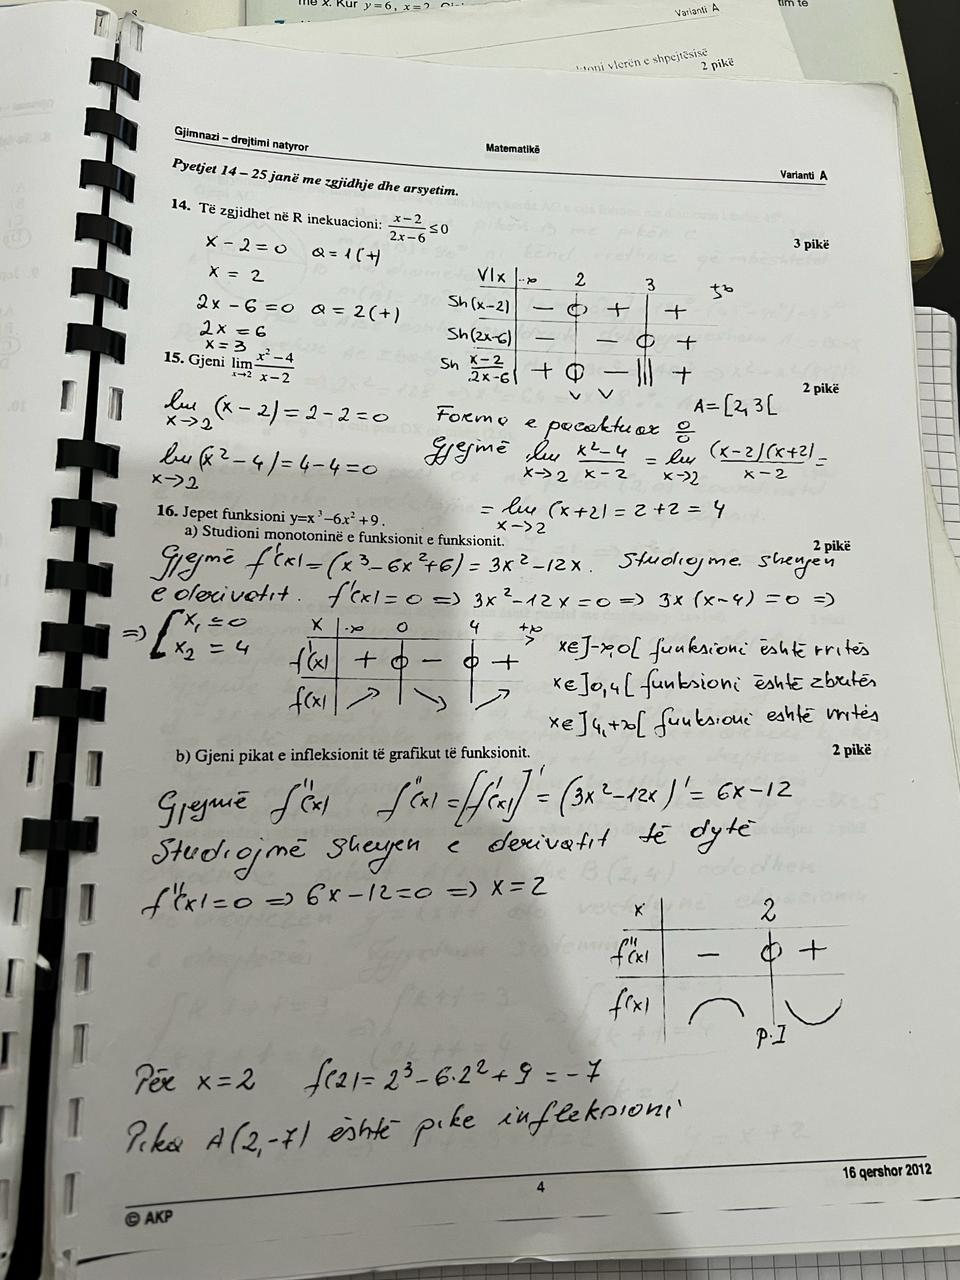 më x. Kur y=6, x=2.
Varianti A
vlerën e shpejtësisë
2 pikë
tim të
Gjimnazi – drejtimi natyror
Matematikë
Varianti A
Pyetjet 14 – 25 janë me zgjidhje dhe arsyetim.
14. Të zgjidhet në R inekuacioni: (x−2)/(2x−6) ≤ 0
3 pikë
x − 2 = 0 a = 1 (+)
x = 2
2x − 6 = 0 a = 2 (+)
2x = 6
x = 3
V/x −∞ 2 3 +∞
Sh(x−2) − 0 + +
Sh(2x−6) − − 0 +
Sh (x−2)/(2x−6) + 0 − ||| +
V V
A = [2, 3[
15. Gjeni lim x→2 (x²−4)/(x−2)
2 pikë
lim x→2 (x − 2) = 2 − 2 = 0 Forma e pacaktuar 0/0
lim x→2 (x² − 4) = 4 − 4 = 0 Gjejmë lim x→2 (x²−4)/(x−2) = lim x→2 (x−2)(x+2)/(x−2) =
= lim x→2 (x+2) = 2 + 2 = 4
16. Jepet funksioni y=x³−6x²+9.
a) Studioni monotoninë e funksionit e funksionit.
2 pikë
Gjejmë f'(x) = (x³ − 6x² + 6) = 3x² − 12x. Studiojme shenjen
e derivatit. f'(x) = 0 => 3x² − 12x = 0 => 3x (x − 4) = 0 =>
=> [ x₁ = 0
x₂ = 4
x −∞ 0 4 +∞
f'(x) + 0 − 0 +
f(x) ↗ ↘ ↗
x∈]−∞,0[ funksioni është rritës
x∈]0,4[ funksioni është zbritës
x∈]4,+∞[ funksioni eshtë rritës
b) Gjeni pikat e infleksionit të grafikut të funksionit.
2 pikë
Gjejmë f''(x) f''(x) = [f'(x)]' = (3x² − 12x)' = 6x − 12
Studiojmë shenjen e derivatit të dytë
f''(x) = 0 => 6x − 12 = 0 => x = 2
x 2
f''(x) − 0 +
f(x)
p.I
Për x = 2 f(2) = 2³ − 6·2² + 9 = −7
Pika A(2,−7) është pike infleksioni
16 qershor 2012
4
© AKP